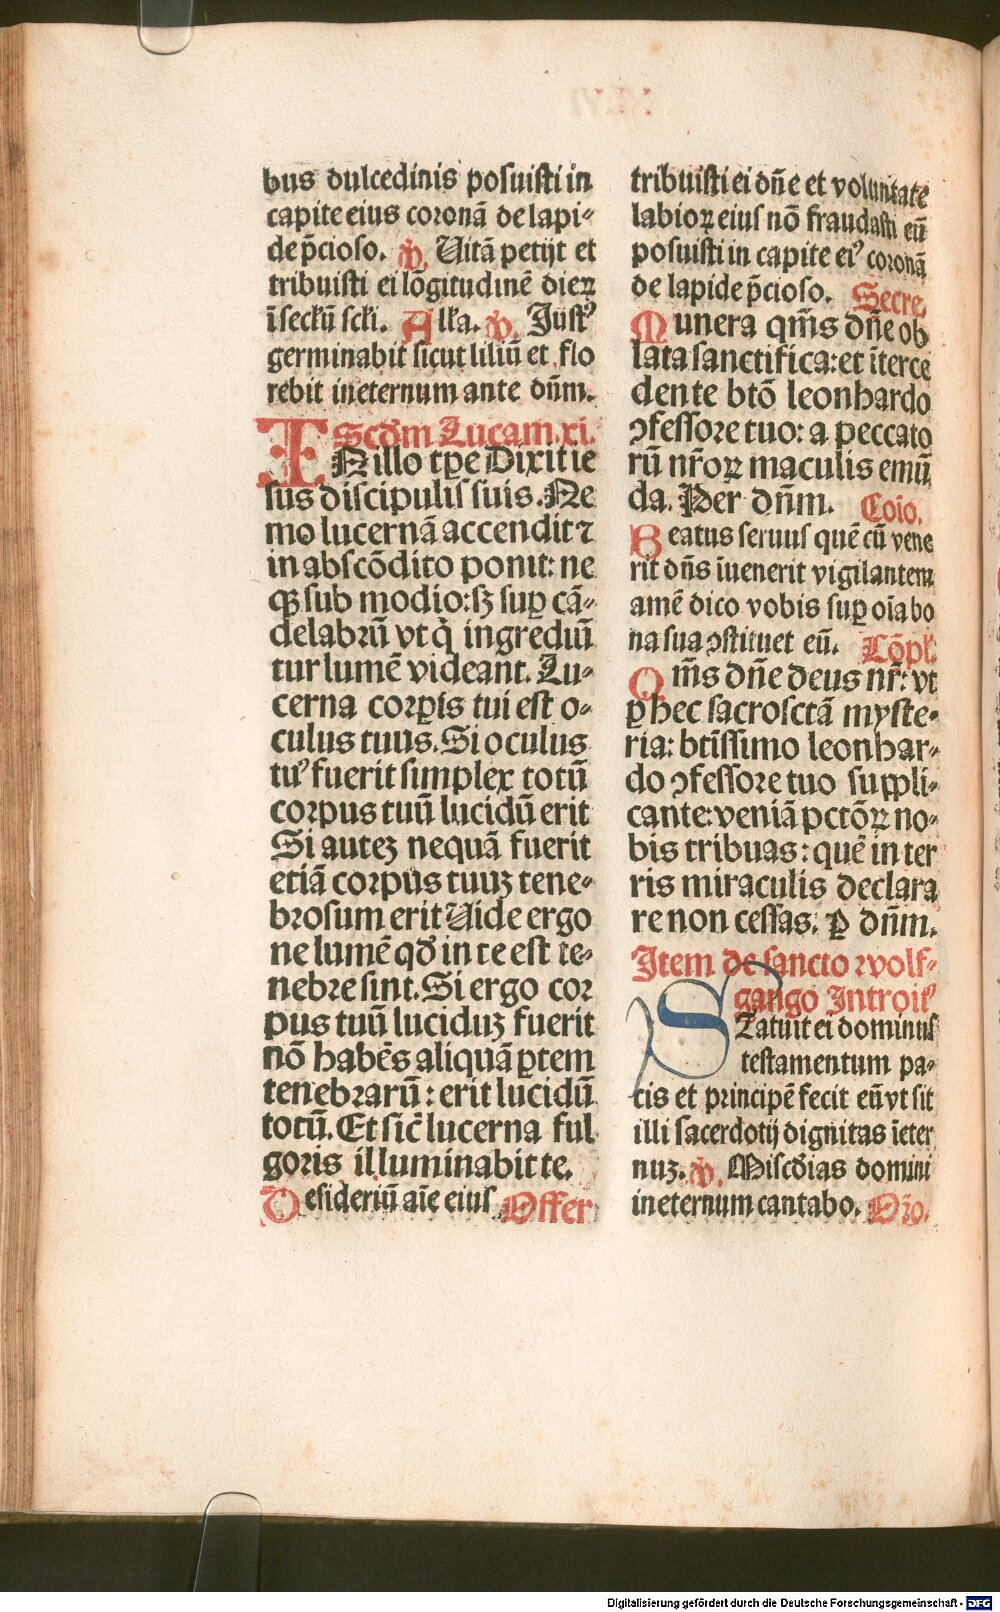 bus dulcedinis posuisti in
capite eius coronã de lapi⸗
de p̃cioso. V̾. Uitã petijt et
tribuisti ei lõgitudinẽ dieꝝ
ĩ seclũ scłi. Alła. V̾. Justꝰ
germinabit sicut liliũ et flo
rebit in eternum ante dñm.
Scđm Lucam.xi.
IN illo tꝑe Dixit ie
sus discipulis suis. Ne
mo lucernã accendit ⁊
in abscõdito ponit: ne
qꝫ sub modio: sꝫ suꝑ cã⸗
delabrũ vt q̇ ingrediũ
tur lumẽ videant. Lu⸗
cerna corꝑis tui est o⸗
culus tuus. Si oculus
tuꝰ fuerit simplex totũ
corpus tuũ lucidũ erit
Si auteꝫ nequã fuerit
etiã corpus tuuꝫ tene⸗
brosum erit Uide ergo
ne lumẽ qđ in te est te⸗
nebre sint. Si ergo cor
pus tuũ luciduꝫ fuerit
nõ habẽs aliquã ꝑtem
tenebrarũ: erit lucidũ
totũ. Et sic̃ lucerna ful
goris illuminabit te.
Desideriũ aĩe eius Offer
tribuisti ei dñe et voluntate
labioꝝ eius nõ fraudasti eũ
posuisti in capite eiꝰ coronã
de lapide p̃cioso. Secre.
Munera qm̃s dñe ob
lata sanctifica: et ĩterce
dente btõ leonhardo
ꝯfessore tuo: a peccato
rũ nr̃oꝝ maculis emũ
da. Per dñm. Coĩo.
Beatus seruus quẽ cũ vene
rit dñs ĩuenerit vigilantem
amẽ dico vobis suꝑ oĩa bo
na sua ꝯstituet eũ. Cõpl.
Qm̃s dñe deus nr̃: vt
ꝑ hec sacrosctã myste⸗
ria: btĩssimo leonhar⸗
do ꝯfessore tuo suppli⸗
cante: veniã pctõꝝ no⸗
bis tribuas: quẽ in ter
ris miraculis declara
re non cessas. P dñm.
Item de sancto wolf⸗
gango Introitꝰ
Statuit ei dominus
testamentum pa⸗
cis et principẽ fecit eũ vt sit
illi sacerdotij dignitas ĩ eter
nuꝫ. V̾. Miscđias domini
in eternum cantabo. Oro.
Digitalisierung gefördert durch die Deutsche Forschungsgemeinschaft - DFG